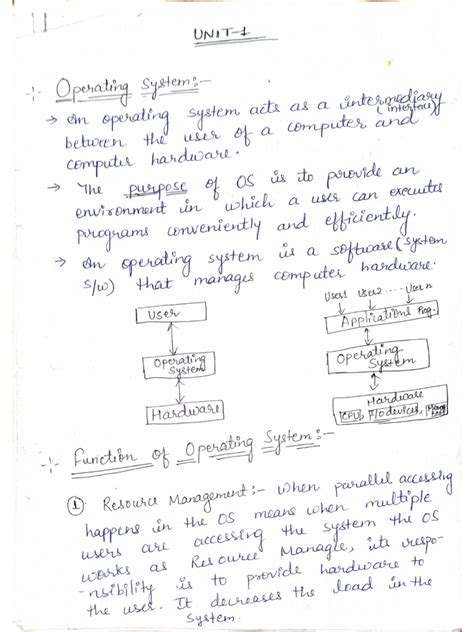 UNIT-1
Operating System:-
→ An operating system acts as a intermediary
(interface)
between the user of a computer and
computer hardware.
→ The purpose of OS is to provide an
environment in which a user can executes
programs conveniently and efficiently.
→ An operating system is a software (system
s/w) that manages computer hardware.
User
Operating
System
Hardware
User1 User2 .... User n
Applications Prog.
Operating
System
Hardware
CPU, I/O devices,
Function of Operating System:-
① Resource Management:- When parallel accessing
happens in the OS means when multiple
users are accessing the system the OS
works as Resource Manager, its respo-
-nsibility is to provide hardware to
the user. It decreases the load in the
system.